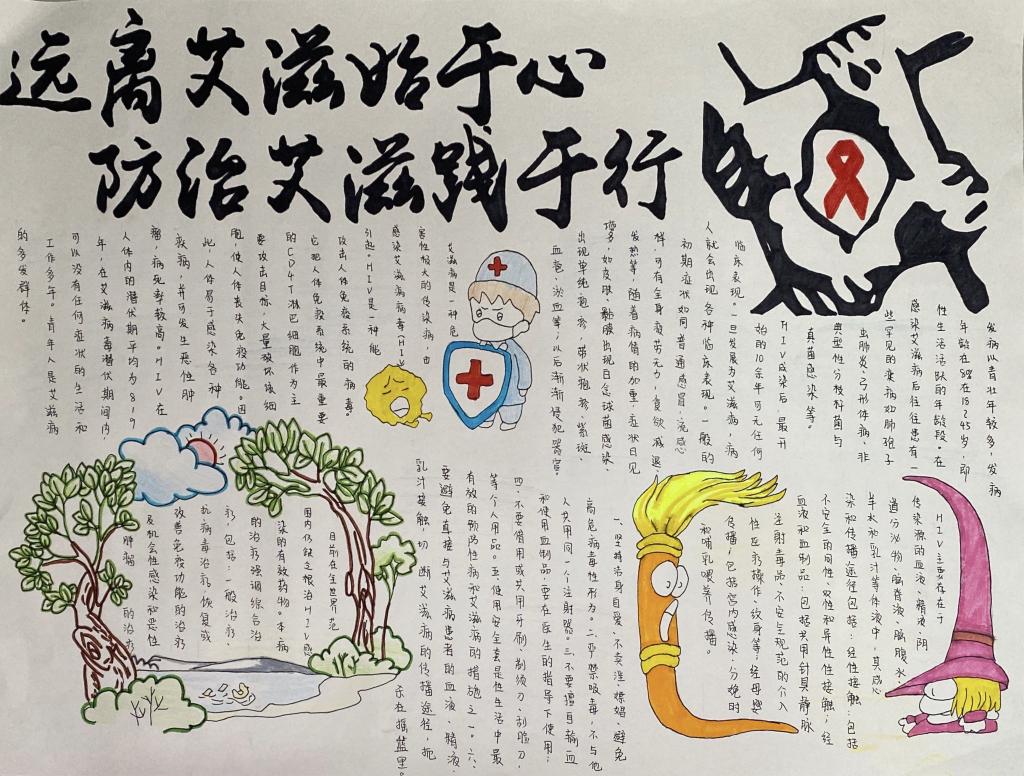 远离艾滋始于心
防治艾滋践于行
艾滋病是一种危
害性极大的传染病，由
感染艾滋病病毒(HIV
引起。HIV是一种能
攻击人体免疫系统的病毒
它把人体免疫系统中最重要
的CD4T淋巴细胞作为主
要攻击目标，大量破坏该细
胞，使人体丧失免疫功能。因
此，人体易于感染各种
疾病，并可发生恶性肿
瘤，病死率较高。HIV在
人体内的潜伏期平均为8-9
年，在艾滋病毒潜伏期间内，
可以没有任何症状的生活和
工作多年。青年人是艾滋病
的多发群体。
发病以青壮年较多，发病
年龄在80%在18-45岁，即
性生活活跃的年龄段。在
感染艾滋病后往往患有一
些罕见的疾病如肺孢子
虫肺炎、弓形体病、非
典型性分枝杆菌与
真菌感染等。
HIV感染后，最开
始的10余年可无任何
临床表现。一旦发展为艾滋病，病
人就会出现各种临床表现。一般的
初期症状如同普通感冒、流感
样，可有全身疲劳无力、食欲减退、
发热等，随着病情的加重，症状日见
增多，如皮肤、黏膜出现白念球菌感染，
出现单纯疱疹、带状疱疹、紫斑、
血疱、淤血等；以后渐渐侵犯器官。
HIV主要存在于
传染源的血液、精液、阴
道分泌物、胸腹水、脑脊液、
羊水和乳汁等体液中，其感
染和传播途径包括：经性接触：包括
不安全的同性、双性和异性性接触；经
血液和血制品：包括共用针具静脉
注射毒品、不安全规范的介入
性医疗操作、纹身等；经母婴
传播：包括宫内感染、分娩时
和哺乳喂养传播。
一、坚持洁身自爱、不卖淫、嫖娼、避免
高危病毒性行为。二、严禁吸毒，不与他
人共用同一个注射器。三、不要擅自输血
和使用血制品，要在医生的指导下使用；
四、不要借用或共用牙刷、剃须刀、刮脸刀、
等个人用品。五、使用安全套是性生活中最
有效的预防性病和艾滋病的措施之一。六、
要避免直接与艾滋病患者的血液、精液、
乳汁接触，切断艾滋病的传播途径，扼
杀在摇篮里。
目前在全世界范
围内仍缺乏根治HIV感
染的有效药物。本病
的治疗强调综合治
疗，包括：一般治疗、
抗病毒治疗、恢复或
改善免疫功能的治疗
及机会性感染和恶性
肿瘤的治疗